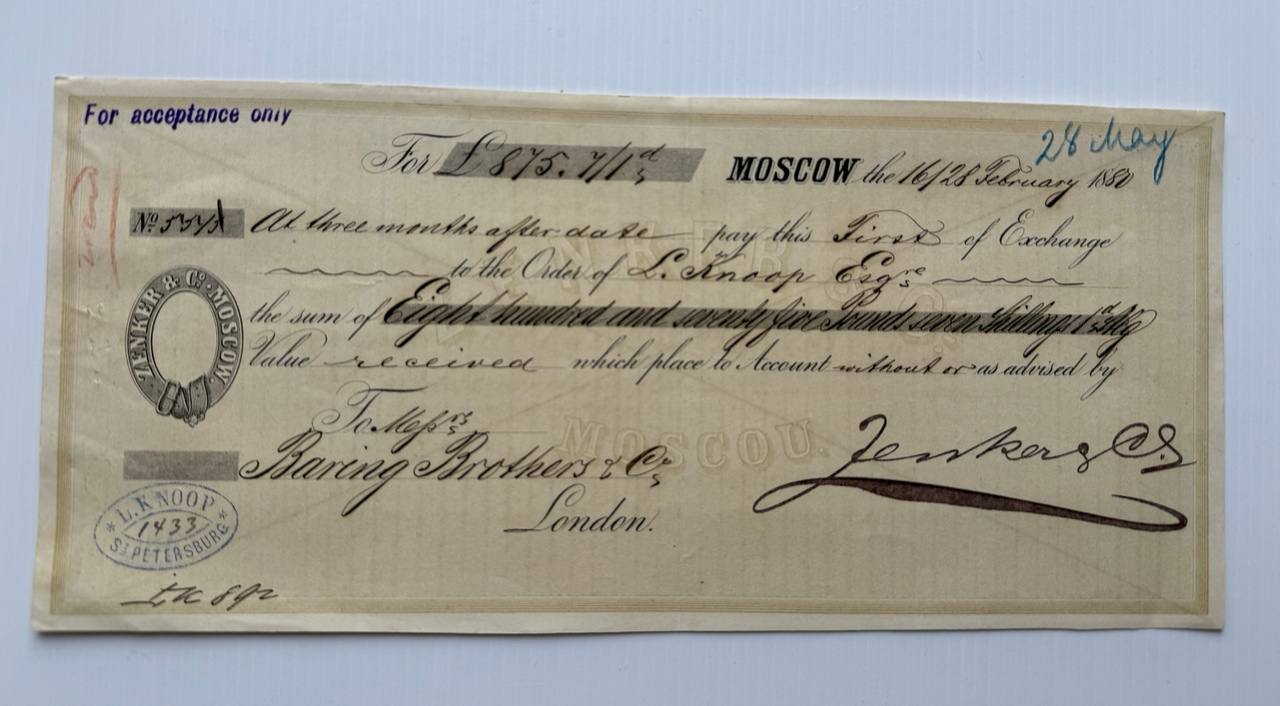 For acceptance only
28 May
For £ 875. 7/1d
MOSCOW the 16/28 February 1880
No. 5545 At three months after date pay this First of Exchange
to the Order of L. Knoop Esqre
the sum of Eight hundred and seventy five Pounds seven Shillings 1d Stlg
Value received which place to Account without or as advised by
ZENKER & Co. MOSCOW.
To Messrs
Baring Brothers & Co
London.
Zenker & Co
MOSCOU.
L. KNOOP
1433
ST. PETERSBURG